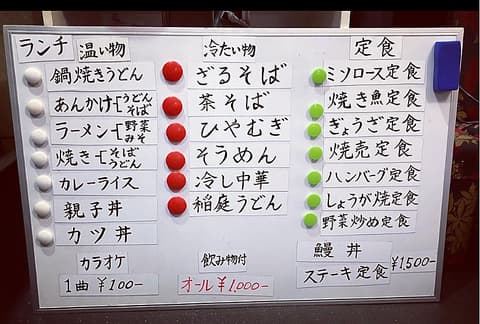 ランチ 温い物
鍋焼きうどん
あんかけ うどん
そば
ラーメン 野菜
みそ
焼き そば
うどん
カレーライス
親子丼
カツ丼
カラオケ
1曲 ¥100-
冷たい物
ざるそば
茶そば
ひやむぎ
そうめん
冷し中華
稲庭うどん
飲み物付
オール ¥1,000-
定食
ミソロース定食
焼き魚定食
ぎょうざ定食
焼売定食
ハンバーグ定食
しょうが焼定食
野菜炒め定食
鰻丼
ステーキ定食 ¥1,500-